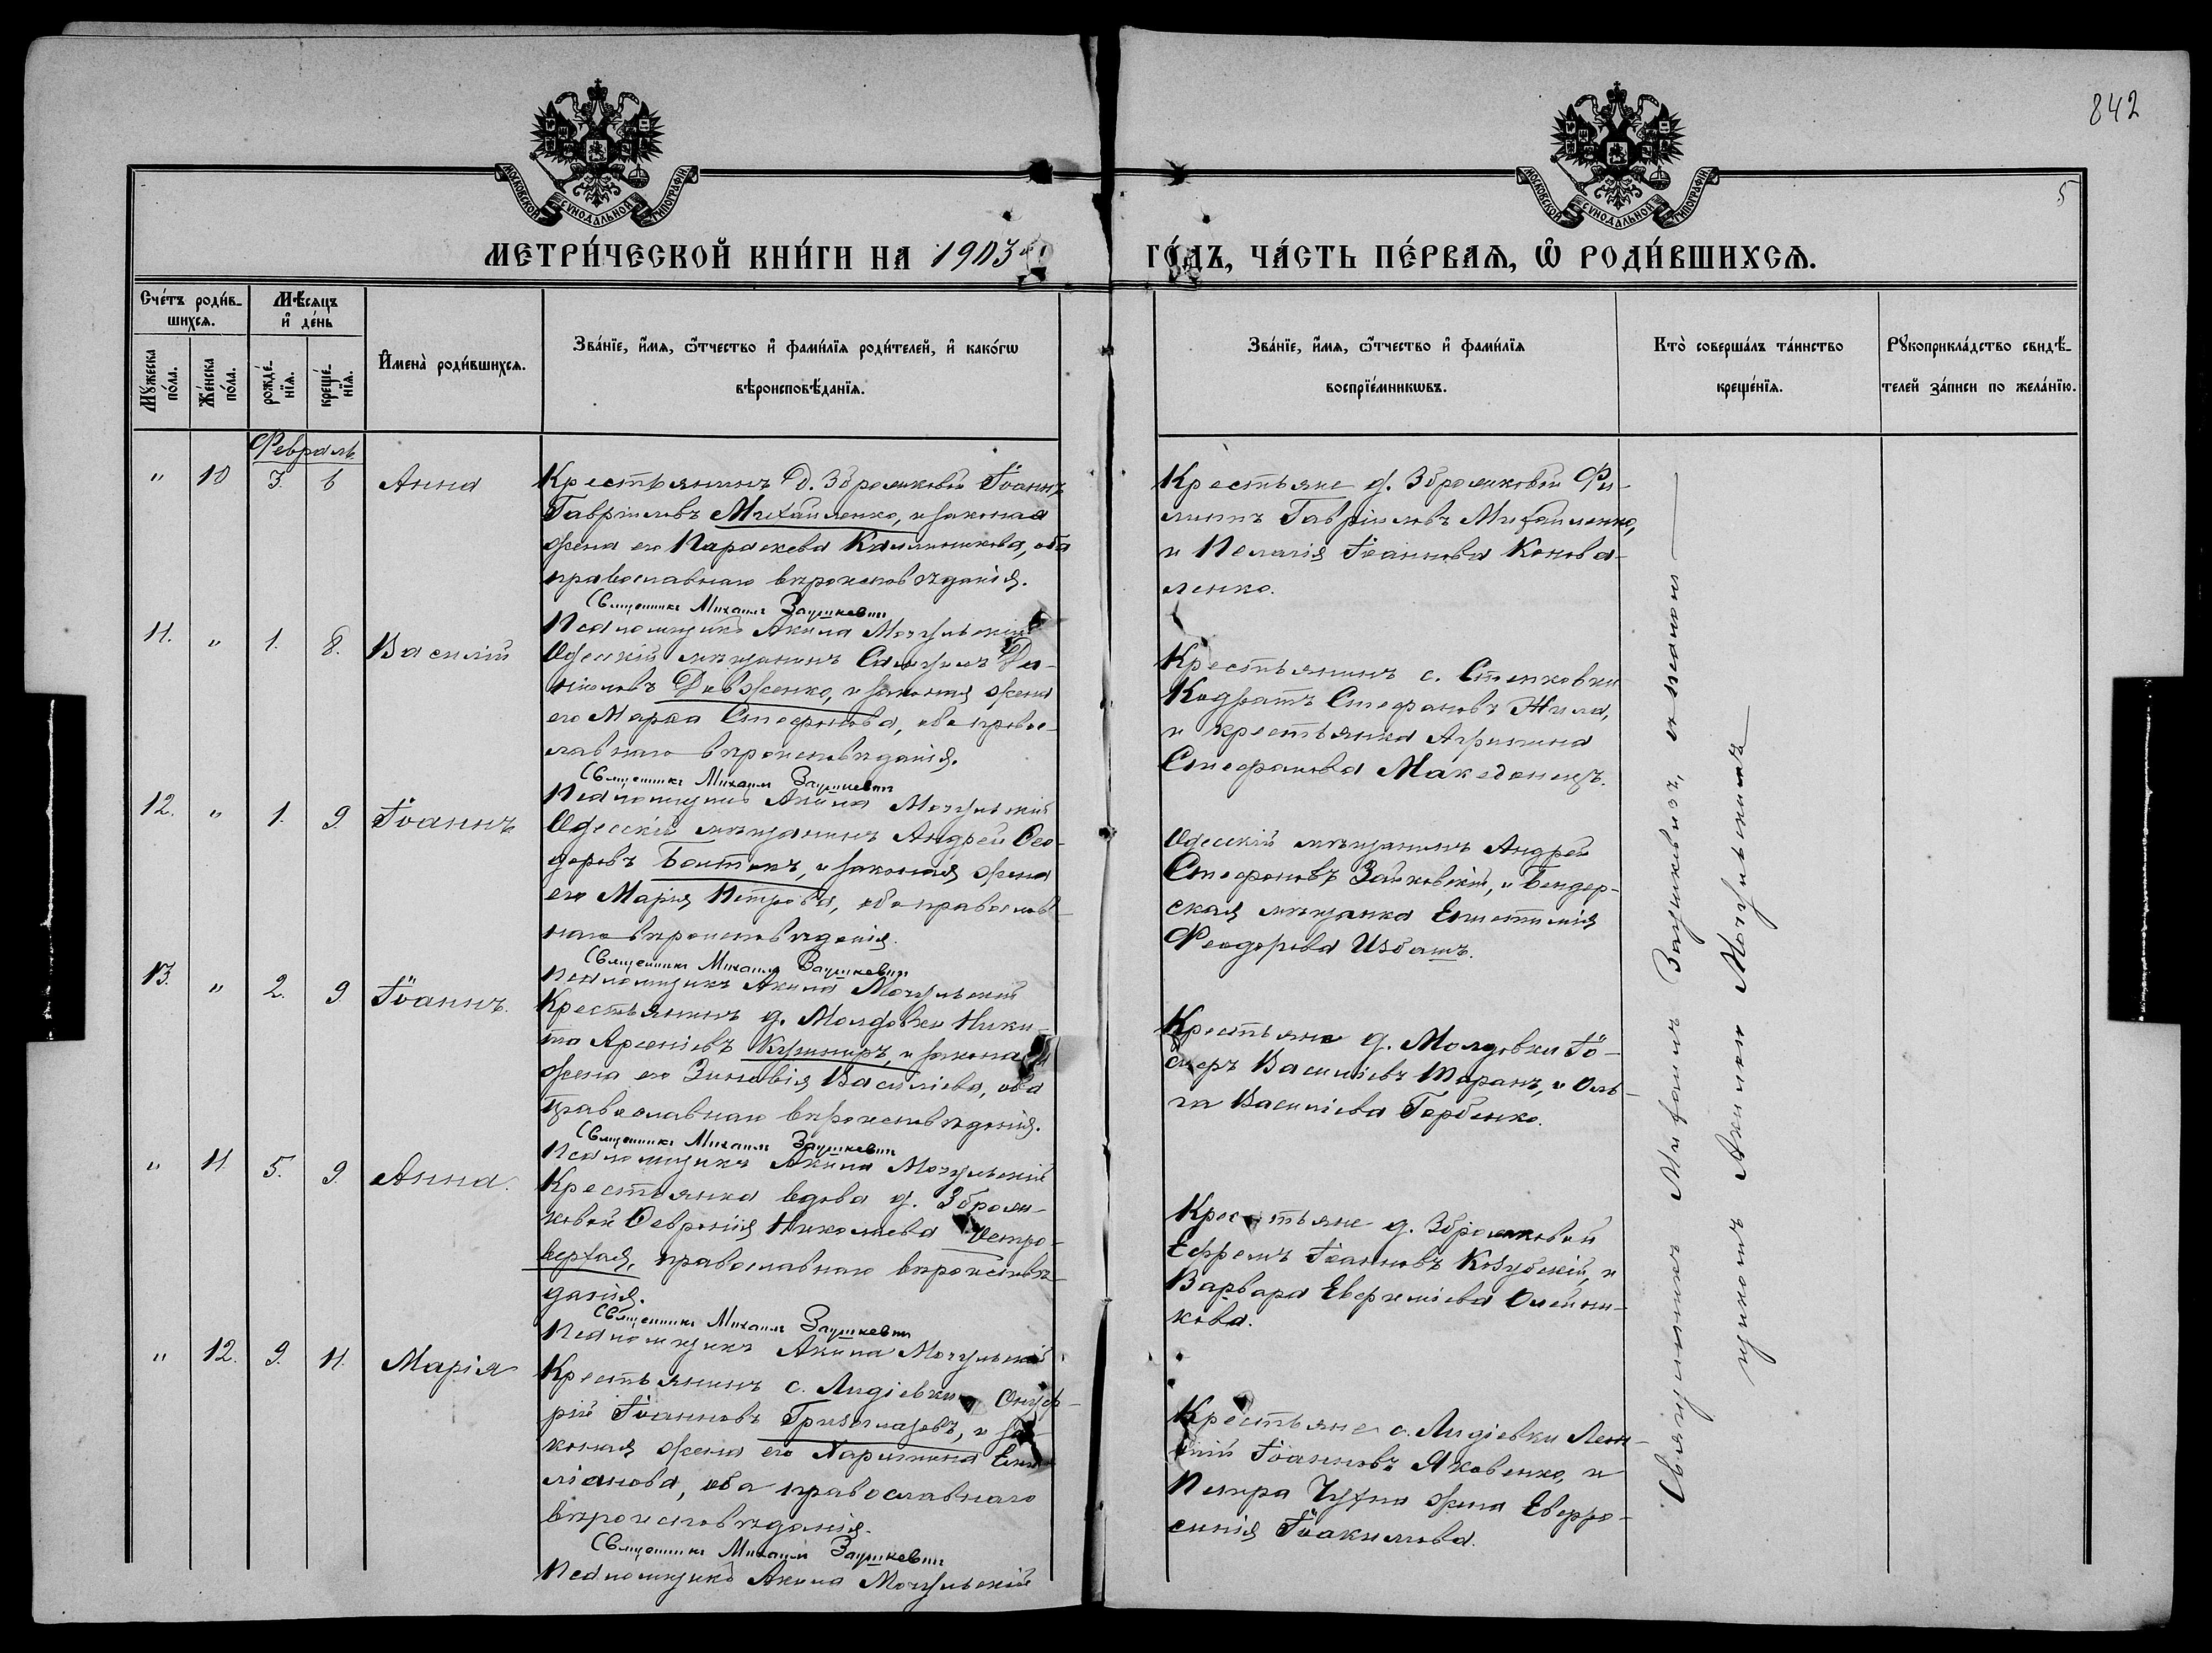 842
5
МОСКОВСКОЙ СУНОДАЛЬНОЙ ТИПОГРАФІИ
МОСКОВСКОЙ СУНОДАЛЬНОЙ ТИПОГРАФІИ
МЕТРИ́ЧЕСКОЙ КНИ́ГИ НА 1903 ГО́ДЪ, ЧА́СТЬ ПЕ́РВАЯ, Ѽ РОДИ́ВШИХСЯ.
Сче́тъ роди́в-
шихся.
Мѣ́сяцъ
и҆ де́нь
Мꙋ́жеска по́ла.
Же́нска по́ла.
рожде́-
нїя.
креще́-
нїя.
И҆мена̀ роди́вшихся.
Зва́нїе, и҆́мя, ѻ҆́тчество и҆ фами́лїя роди́телей, и҆ како́гѡ
вѣроисповѣ́данїя.
Зва́нїе, и҆́мя, ѻ҆́тчество и҆ фами́лїя
воспрїе́мникѡвъ.
Кто̀ соверша́лъ та́инство
креще́нїя.
Рꙋкоприкла́дство свидѣ́-
телей за́писи по жела́нїю.
Февраль
" 10 3. 6 Анна
Крестьянинъ д. Збромиковой Іоаннъ
Гавріиловъ Михайленко, и законая
жена его Параскева Каллиникова, оба
православнаго вѣроисповѣданія.
Священникъ Михаилъ Заушкевич
Псаломщикъ Акила Мочульскій
Крестьяне д. Збромиковой Фи-
липпъ Гавріиловъ Михайленко,
и Пелагія Іоаннова Конова-
ленко.
11. " 1. 8. Василій
Одесскій мѣщанинъ Самуилъ Да-
ніиловъ Довженко, и законая жена
его Марѳа Стефанова, оба право-
славнаго вѣроисповѣданія.
Священникъ Михаилъ Заушкевич
Псаломщикъ Акила Мочульскій
Крестьянинъ с. Степковки
Кодратъ Стефановъ Жила,
и крестьянка Агрипина
Стефанова Македонецъ.
12. " 1. 9. Іоаннъ
Одесскій мѣщанинъ Андрей Ѳео-
доровъ Болтянъ, и законая жена
его Марія Петрова, оба православ-
наго вѣроисповѣданія.
Священникъ Михаилъ Заушкевич
Псаломщикъ Акила Мочульскій
Одесскій мѣщанинъ Андрей
Стефановъ Зайковскій, и Бендер-
ская мѣщанка Епистимія
Феодорова Избашъ.
13. " 2. 9 Іоаннъ.
Крестьянинъ д. Молдовки Ники-
та Арсеніевъ Кушниръ, и законая
жена его Зиновія Василіева, оба
православнаго вѣроисповѣданія.
Священникъ Михаилъ Заушкевич
Псаломщикъ Акила Мочульскій
Крестьяне д. Молдовки Іо-
сифъ Василіевъ Таранъ, и Оль-
га Василіева Горбенко.
" 11. 5. 9. Анна.
Крестьянка вдова д. Зброми-
ковой Ѳевронія Николаева Четро-
верхая, православнаго вѣроисповѣ-
данія.
Священникъ Михаилъ Заушкевич
Псаломщикъ Акила Мочульскій
Крестьяне д. Збромиковой
Ефремъ Іоанновъ Козубскій, и
Варвара Евфиміева Олейни-
кова.
" 12. 9. 11. Марія
Крестьянинъ с. Лидіевки Онуф-
рій Іоанновъ и за-
коная жена его Харитина Еми-
ліанова, оба православнаго
вѣроисповѣданія.
Священникъ Михаилъ Заушкевич
Псаломщикъ Акила Мочульскій
Крестьяне с. Лидіевки Леон-
тій Іоанновъ Яковенко, и
Петра Чухна жена Евфро-
синія Іоакимова.
Священникъ Михаилъ Заушкевичъ, съ псалом-
щикомъ Акилою Мочульскимъ